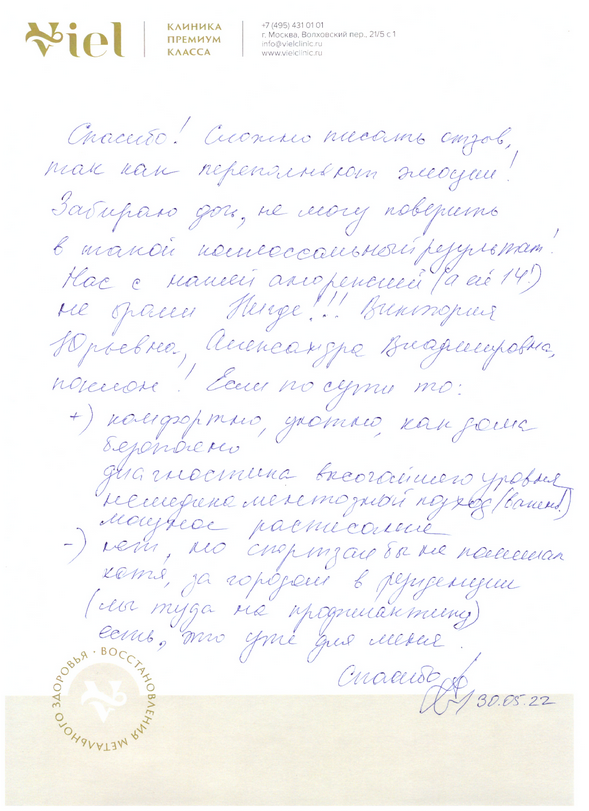 Viel
КЛИНИКА
ПРЕМИУМ
КЛАССА
+7 (495) 431 01 01
г. Москва, Волховский пер., 21/5 с 1
info@vielclinic.ru
www.vielclinic.ru
Спасибо! Сложно писать отзыв,
так как переполняют эмоции!
Забираю дочь, не могу поверить
в такой колоссальный результат!
Нас с нашей анорексией (а ей 14!)
не брали Нигде!!! Виктория
Юрьевна, Александра Владимировна,
поклон! Если по сути то:
+) комфортно, уютно, как дома
безопасно
диагностика высочайшего уровня
немедикаментозный подход (важно!)
мощное расписание
-) нет, но спортзал бы не помешал
хотя, за городом в резиденции
(мы туда на профилактику)
есть, это уже для меня.
Спасибо
30.05.22
ВОССТАНОВЛЕНИЯ МЕТАЛЬНОГО ЗДОРОВЬЯ